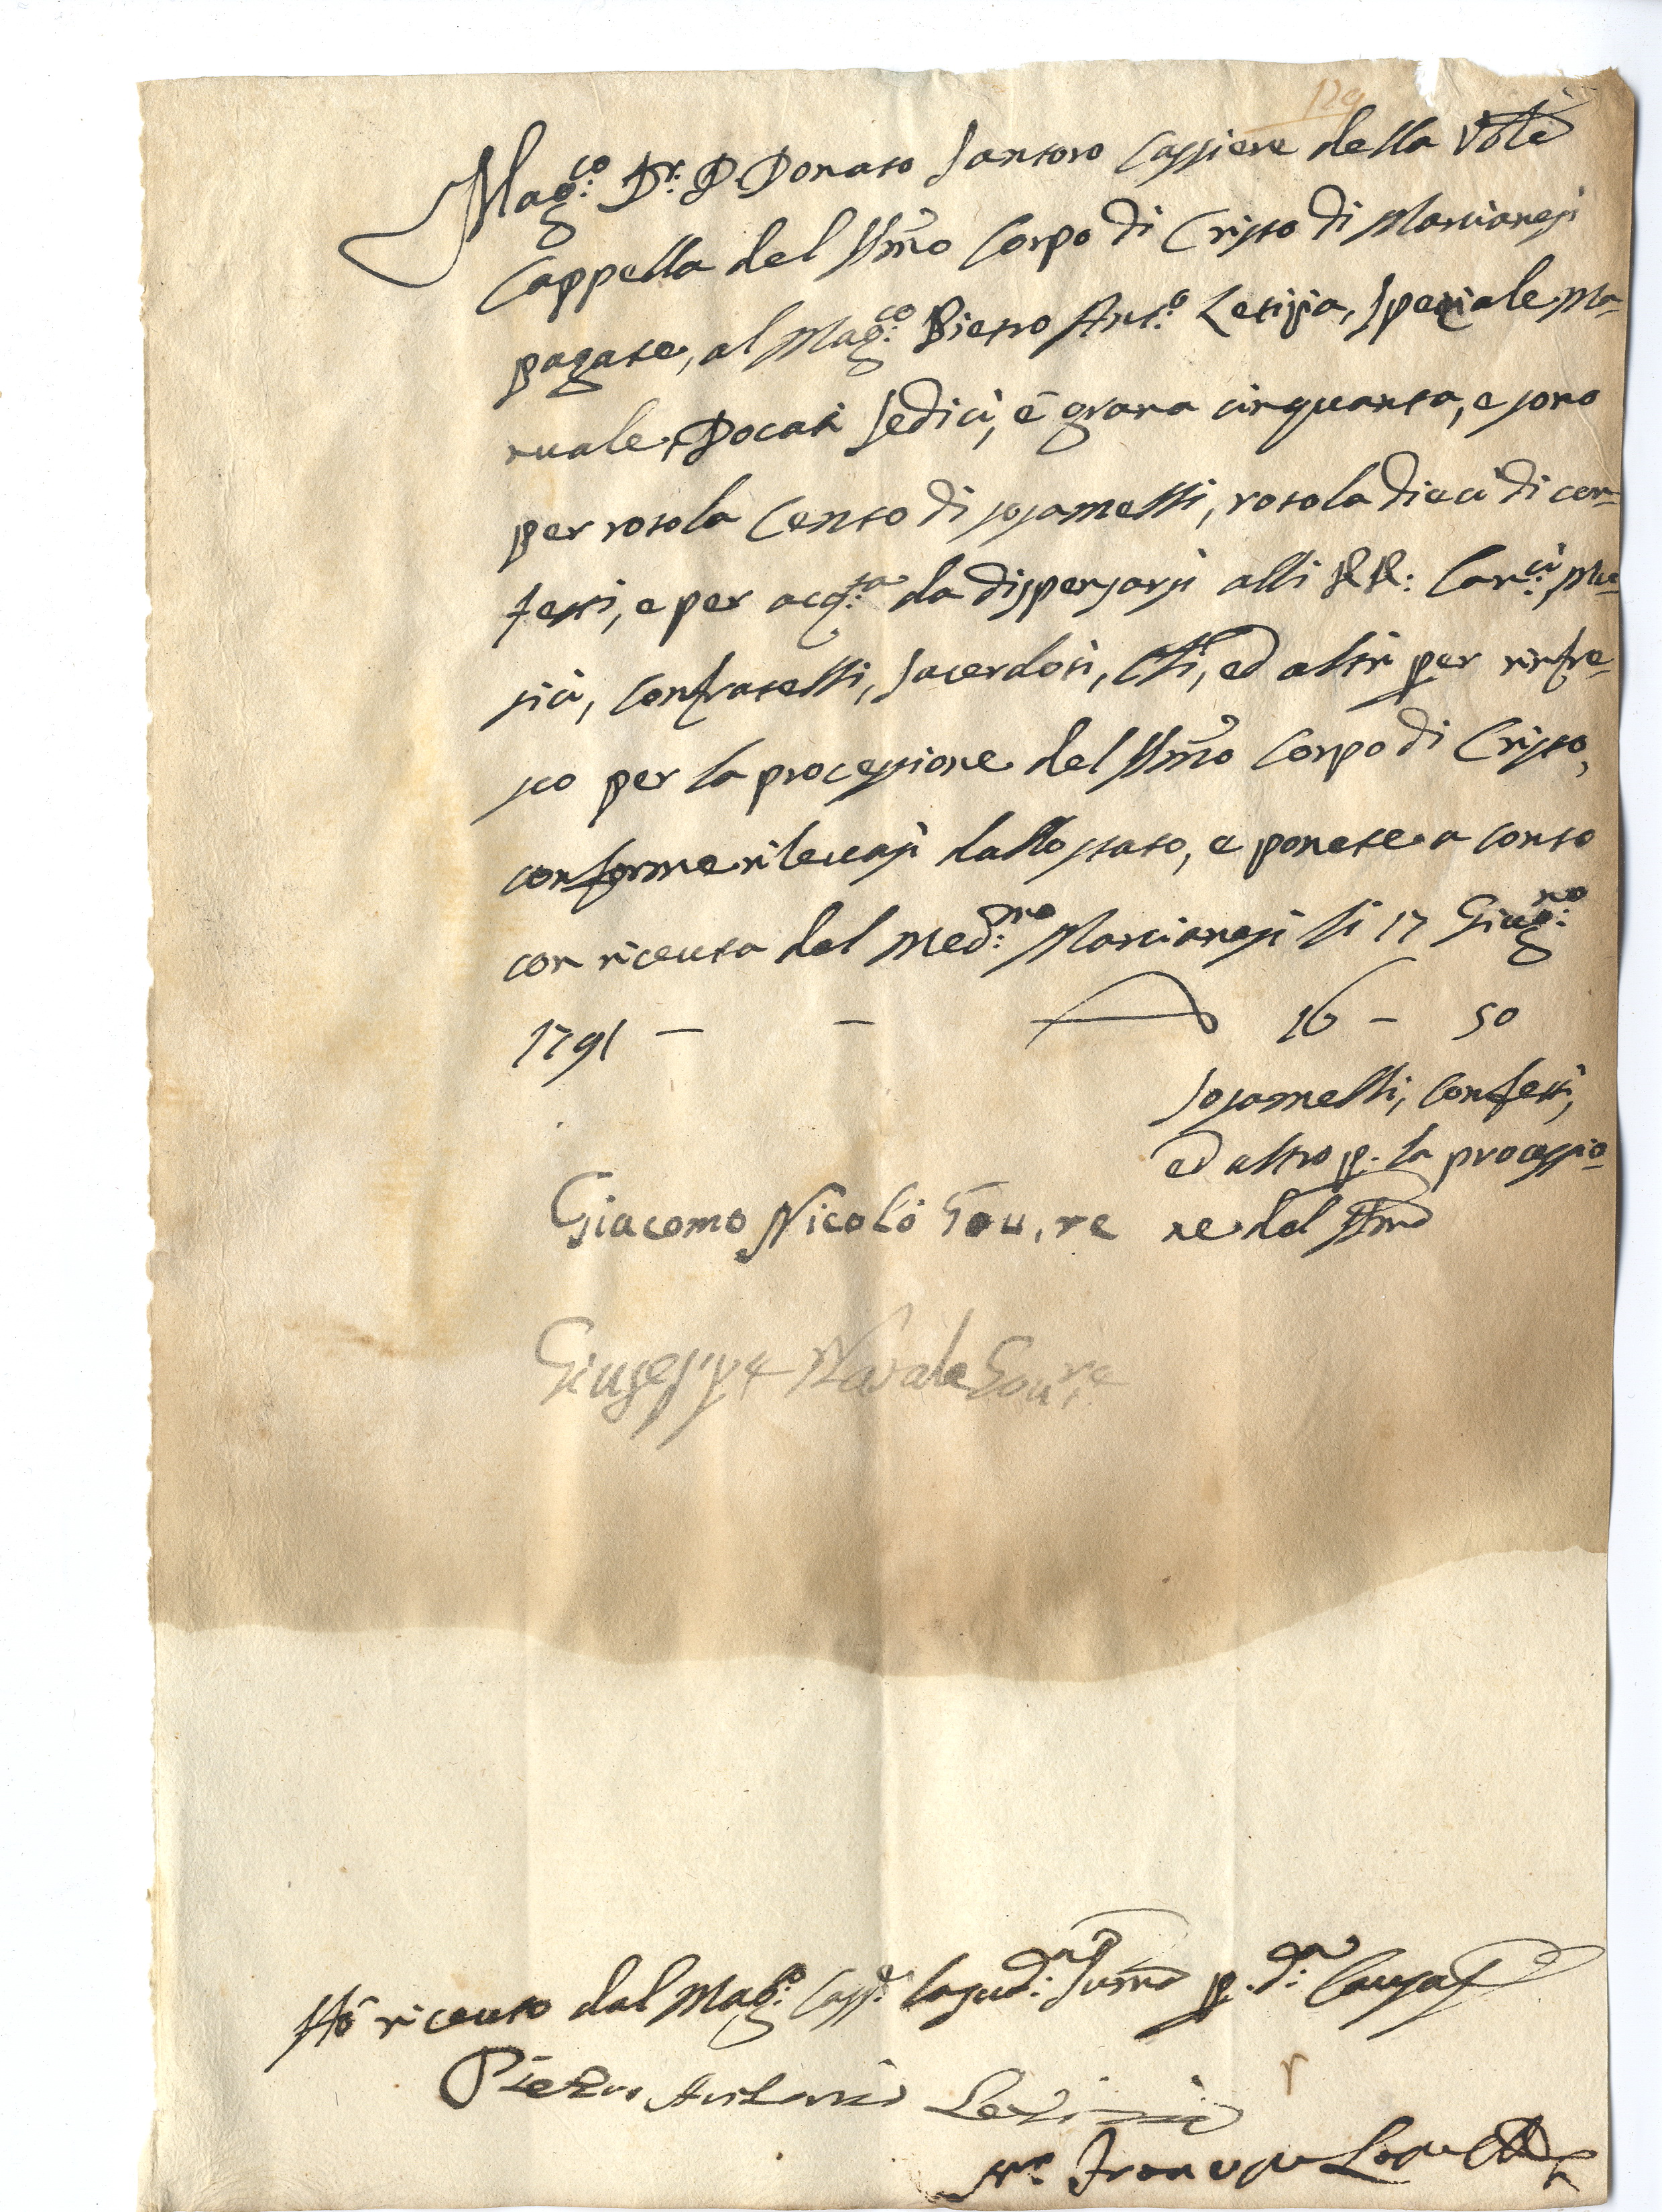 129
Mag:co Dr: D. Donato Santoro Cassiere della Ven:le
Cappella del SSmo Corpo di Cristo di Marcianesi
pagate, al Mag:co Pietro Ant:o Letizia, speziale ma-
nuale, Docati sedici, e grana cinquanta, e sono
per rotola cento di sosamelli, rotola dieci di con-
fetti, e per acq:ta da dispensarsi alli RR: Can:ci, mu-
sici, confratelli, sacerdoti, Cti, ed altri per rinfre-
sco per la processione del SSmo Corpo di Cristo,
conforme rilevasi dallo stato, e ponete a conto
con riceuta del med:mo Marcianesi li 17 Giug:no
1791 — — 16 — 50
Sosamelli, confetti,
ed altro p. la processio-
ne del SSmo
Giacomo Nicolò Gou.re
Giuseppe Natale Gou.re
Hò riceuto dal Mag:co Cass:e la sud:a summa p. d:a causa
Pietro Antonio Letizia